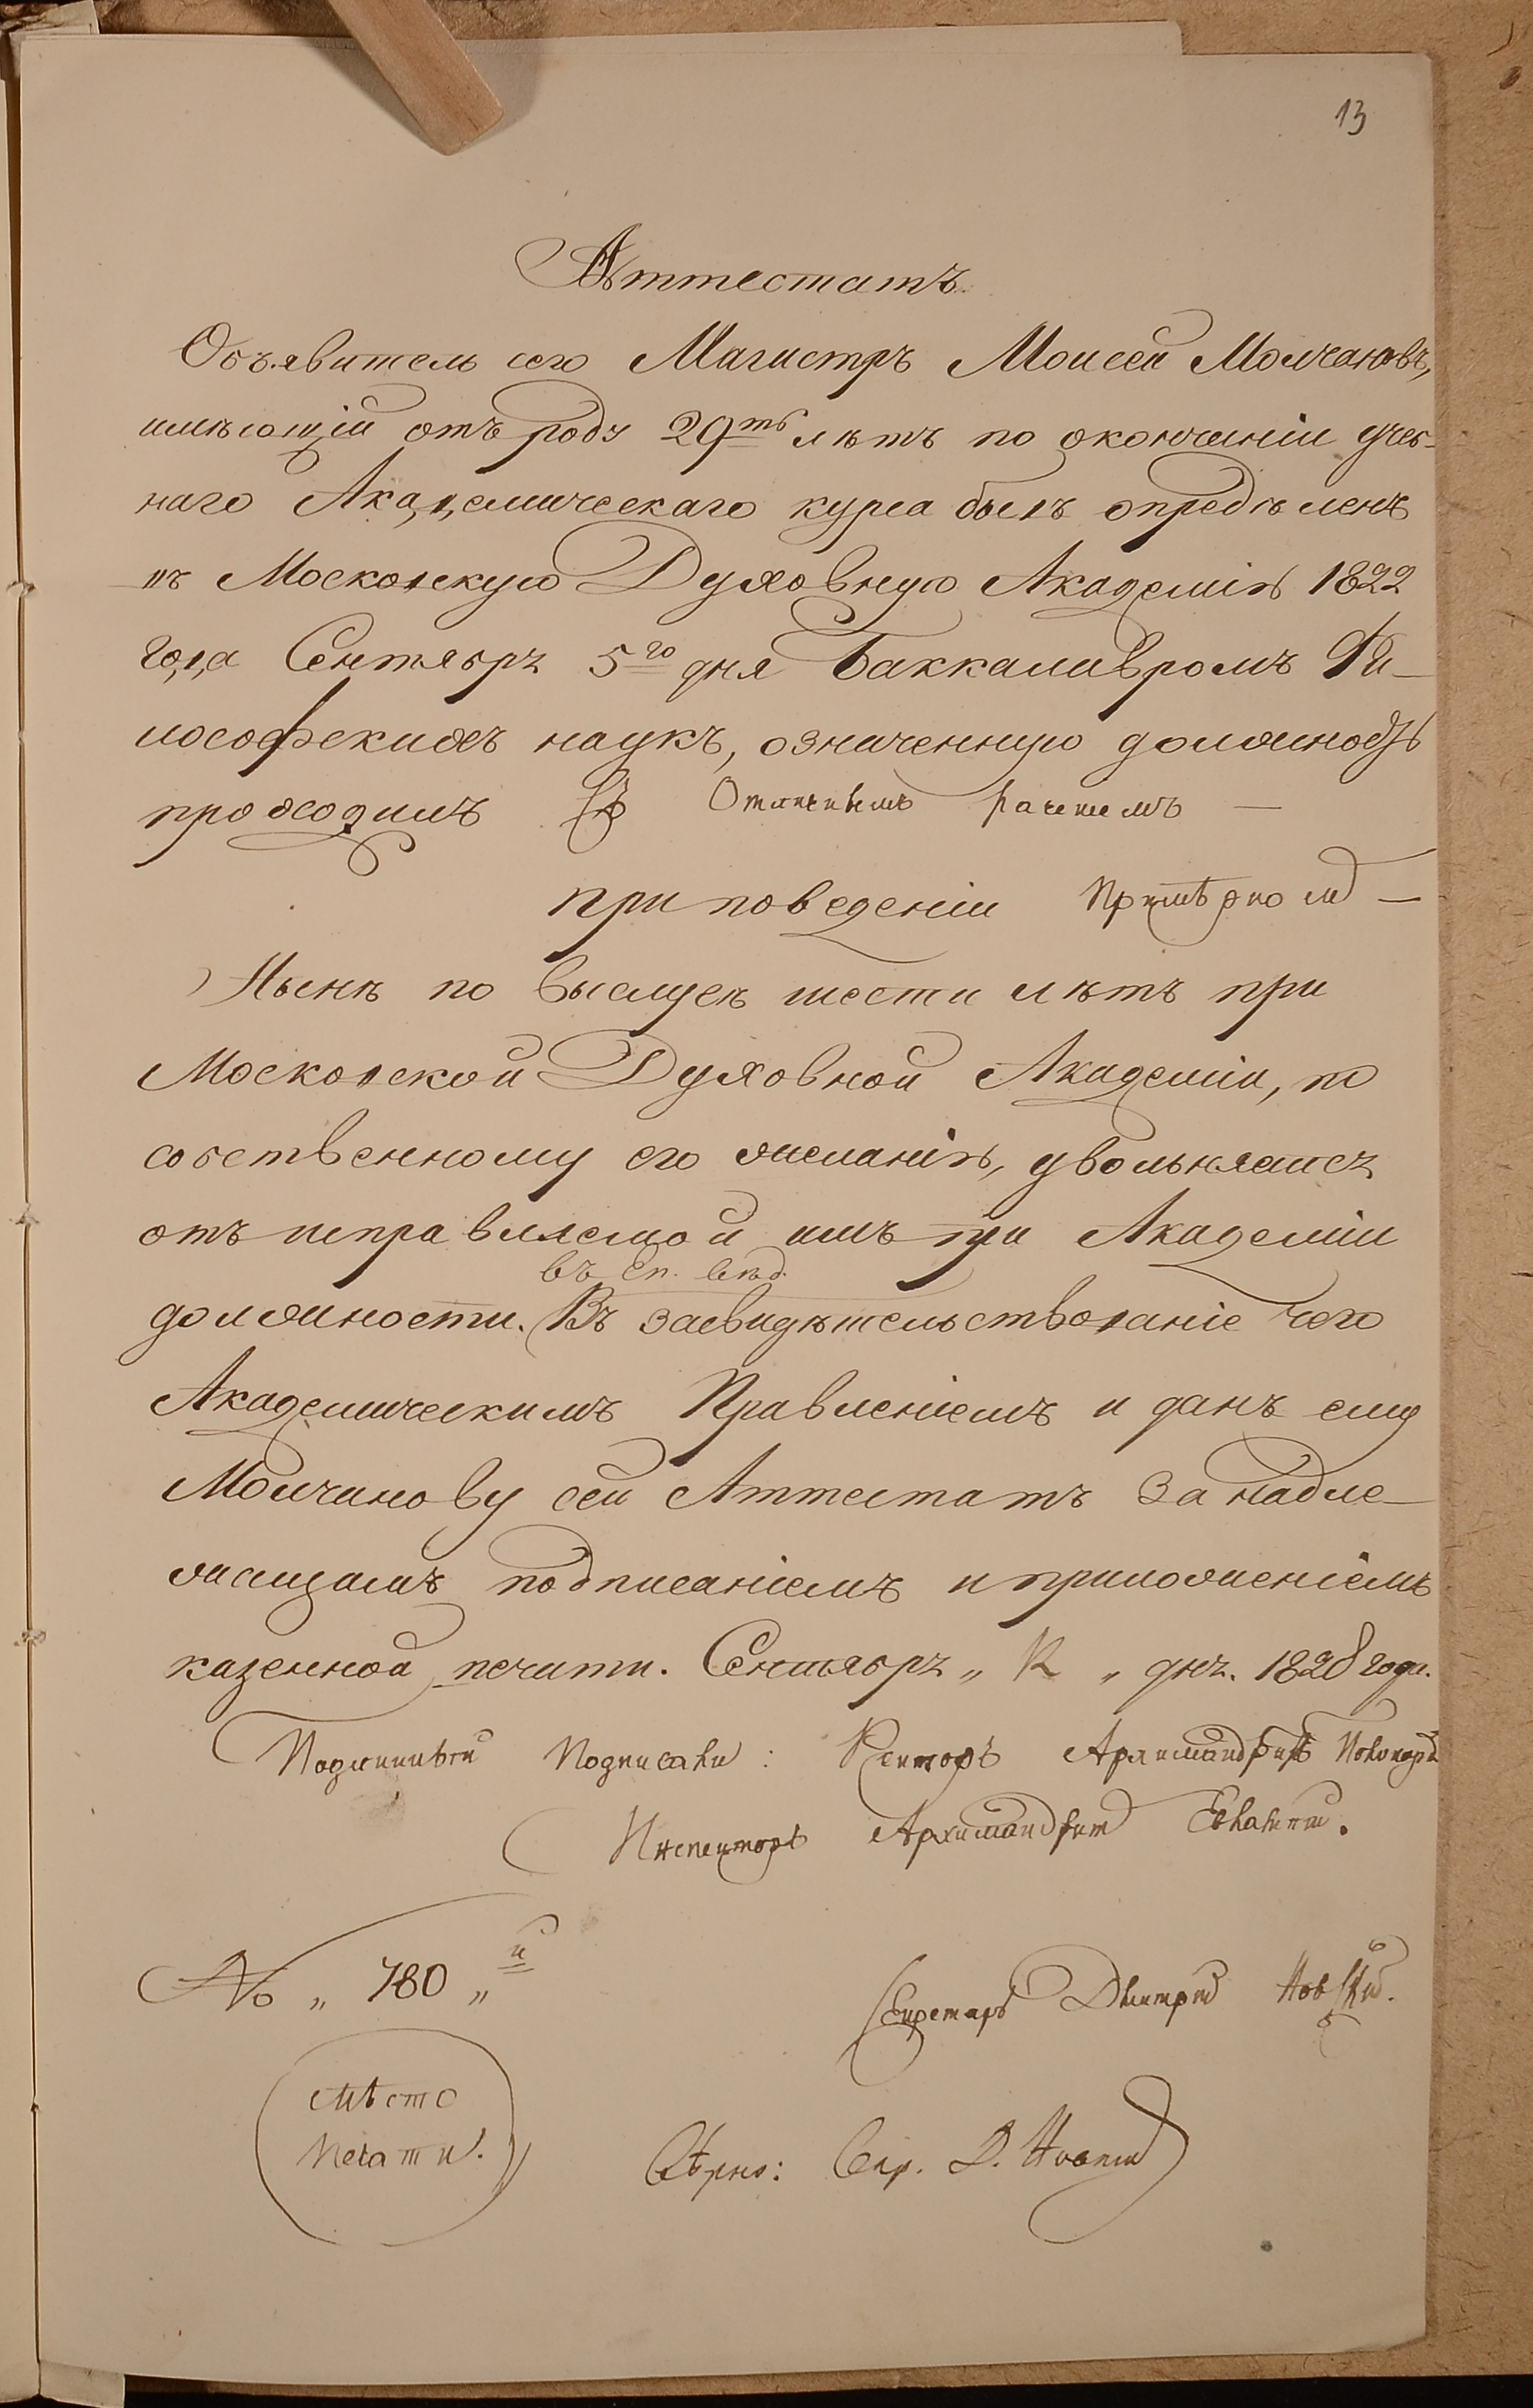 13
Аттестатъ.
Объявитель сего Магистръ Моисей Молчановъ,
имѣющій отъ роду 29ть лѣтъ по окончаніи учеб-
наго Академическаго курса былъ опредѣленъ
въ Московскую Духовную Академію 1822
года Сентября 5го дня Баккалавромъ Фи-
лософскихъ наукъ, означенную должность
проходилъ съ Отличнымъ рачениемъ —
при поведеніи Примѣрномъ —
Нынѣ по выслугѣ шести лѣтъ при
Московской Духовной Академіи, по
собственному его желанію, увольняется
отъ исправляемой имъ при Академіи
въ Еп. вѣд.
должности. Въ засвидѣтельствованіе чего
Академическимъ Правленіемъ и данъ ему
Молчанову сей Аттестатъ за надле-
жащимъ подписаніемъ и приложеніемъ
казенной печати. Сентября „ „ дня. 1828 года.
Подлинный Подписали: Ректоръ Архимандритъ Поликарпъ
Инспекторъ Архимандрит Евлампий.
№ „ 780 „ й
Секретарь Дмитрий Новский.
Мѣсто
Печати.
Вѣрно: Секр. Д. Новский